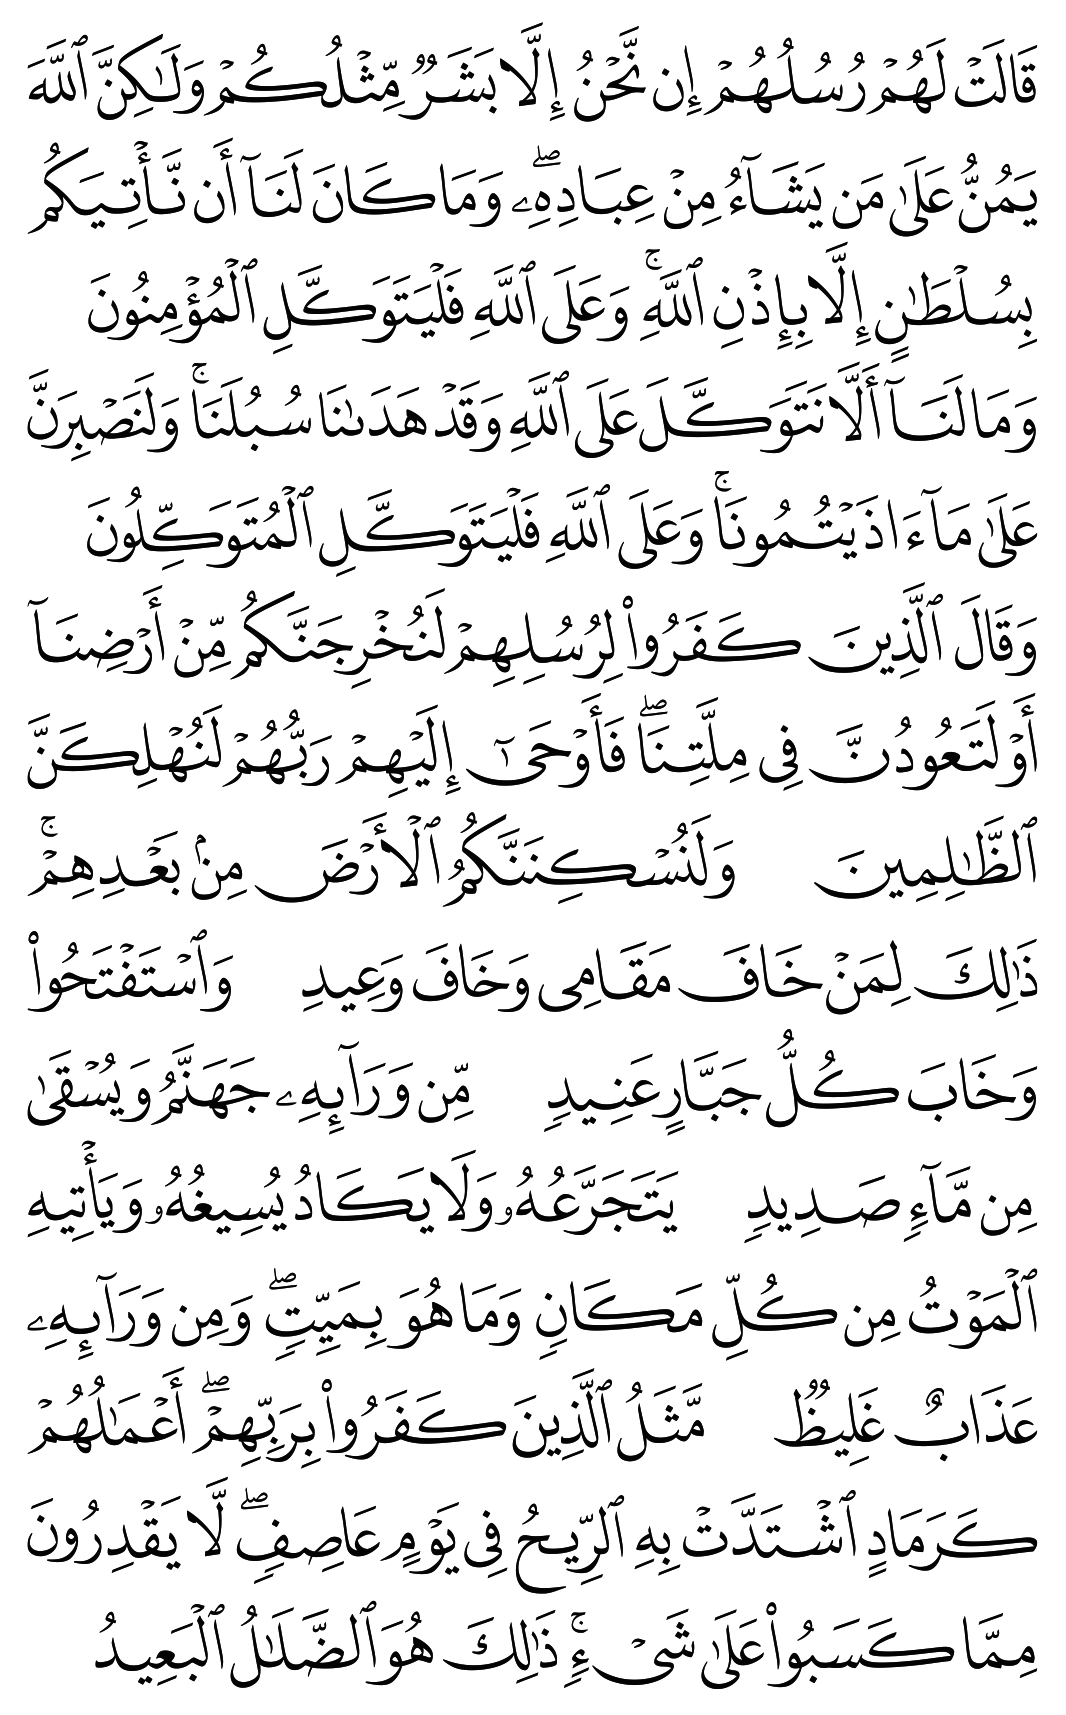 قَالَتْ لَهُمْ رُسُلُهُمْ إِن نَّحْنُ إِلَّا بَشَرٌ مِّثْلُكُمْ وَلَٰكِنَّ ٱللَّهَ
يَمُنُّ عَلَىٰ مَن يَشَآءُ مِنْ عِبَادِهِۦۖ وَمَا كَانَ لَنَآ أَن نَّأْتِيَكُم
بِسُلْطَٰنٍ إِلَّا بِإِذْنِ ٱللَّهِۚ وَعَلَى ٱللَّهِ فَلْيَتَوَكَّلِ ٱلْمُؤْمِنُونَ
وَمَا لَنَآ أَلَّا نَتَوَكَّلَ عَلَى ٱللَّهِ وَقَدْ هَدَىٰنَا سُبُلَنَاۚ وَلَنَصْبِرَنَّ
عَلَىٰ مَآ ءَاذَيْتُمُونَاۚ وَعَلَى ٱللَّهِ فَلْيَتَوَكَّلِ ٱلْمُتَوَكِّلُونَ
وَقَالَ ٱلَّذِينَ كَفَرُوا۟ لِرُسُلِهِمْ لَنُخْرِجَنَّكُم مِّنْ أَرْضِنَآ
أَوْ لَتَعُودُنَّ فِى مِلَّتِنَاۖ فَأَوْحَىٰٓ إِلَيْهِمْ رَبُّهُمْ لَنُهْلِكَنَّ
ٱلظَّٰلِمِينَ وَلَنُسْكِنَنَّكُمُ ٱلْأَرْضَ مِنۢ بَعْدِهِمْۚ
ذَٰلِكَ لِمَنْ خَافَ مَقَامِى وَخَافَ وَعِيدِ وَٱسْتَفْتَحُوا۟
وَخَابَ كُلُّ جَبَّارٍ عَنِيدٍ مِّن وَرَآئِهِۦ جَهَنَّمُ وَيُسْقَىٰ
مِن مَّآءٍ صَدِيدٍ يَتَجَرَّعُهُۥ وَلَا يَكَادُ يُسِيغُهُۥ وَيَأْتِيهِ
ٱلْمَوْتُ مِن كُلِّ مَكَانٍ وَمَا هُوَ بِمَيِّتٍۖ وَمِن وَرَآئِهِۦ
عَذَابٌ غَلِيظٌ مَّثَلُ ٱلَّذِينَ كَفَرُوا۟ بِرَبِّهِمْۖ أَعْمَٰلُهُمْ
كَرَمَادٍ ٱشْتَدَّتْ بِهِ ٱلرِّيحُ فِى يَوْمٍ عَاصِفٍۖ لَّا يَقْدِرُونَ
مِمَّا كَسَبُوا۟ عَلَىٰ شَىْءٍۚ ذَٰلِكَ هُوَ ٱلضَّلَٰلُ ٱلْبَعِيدُ